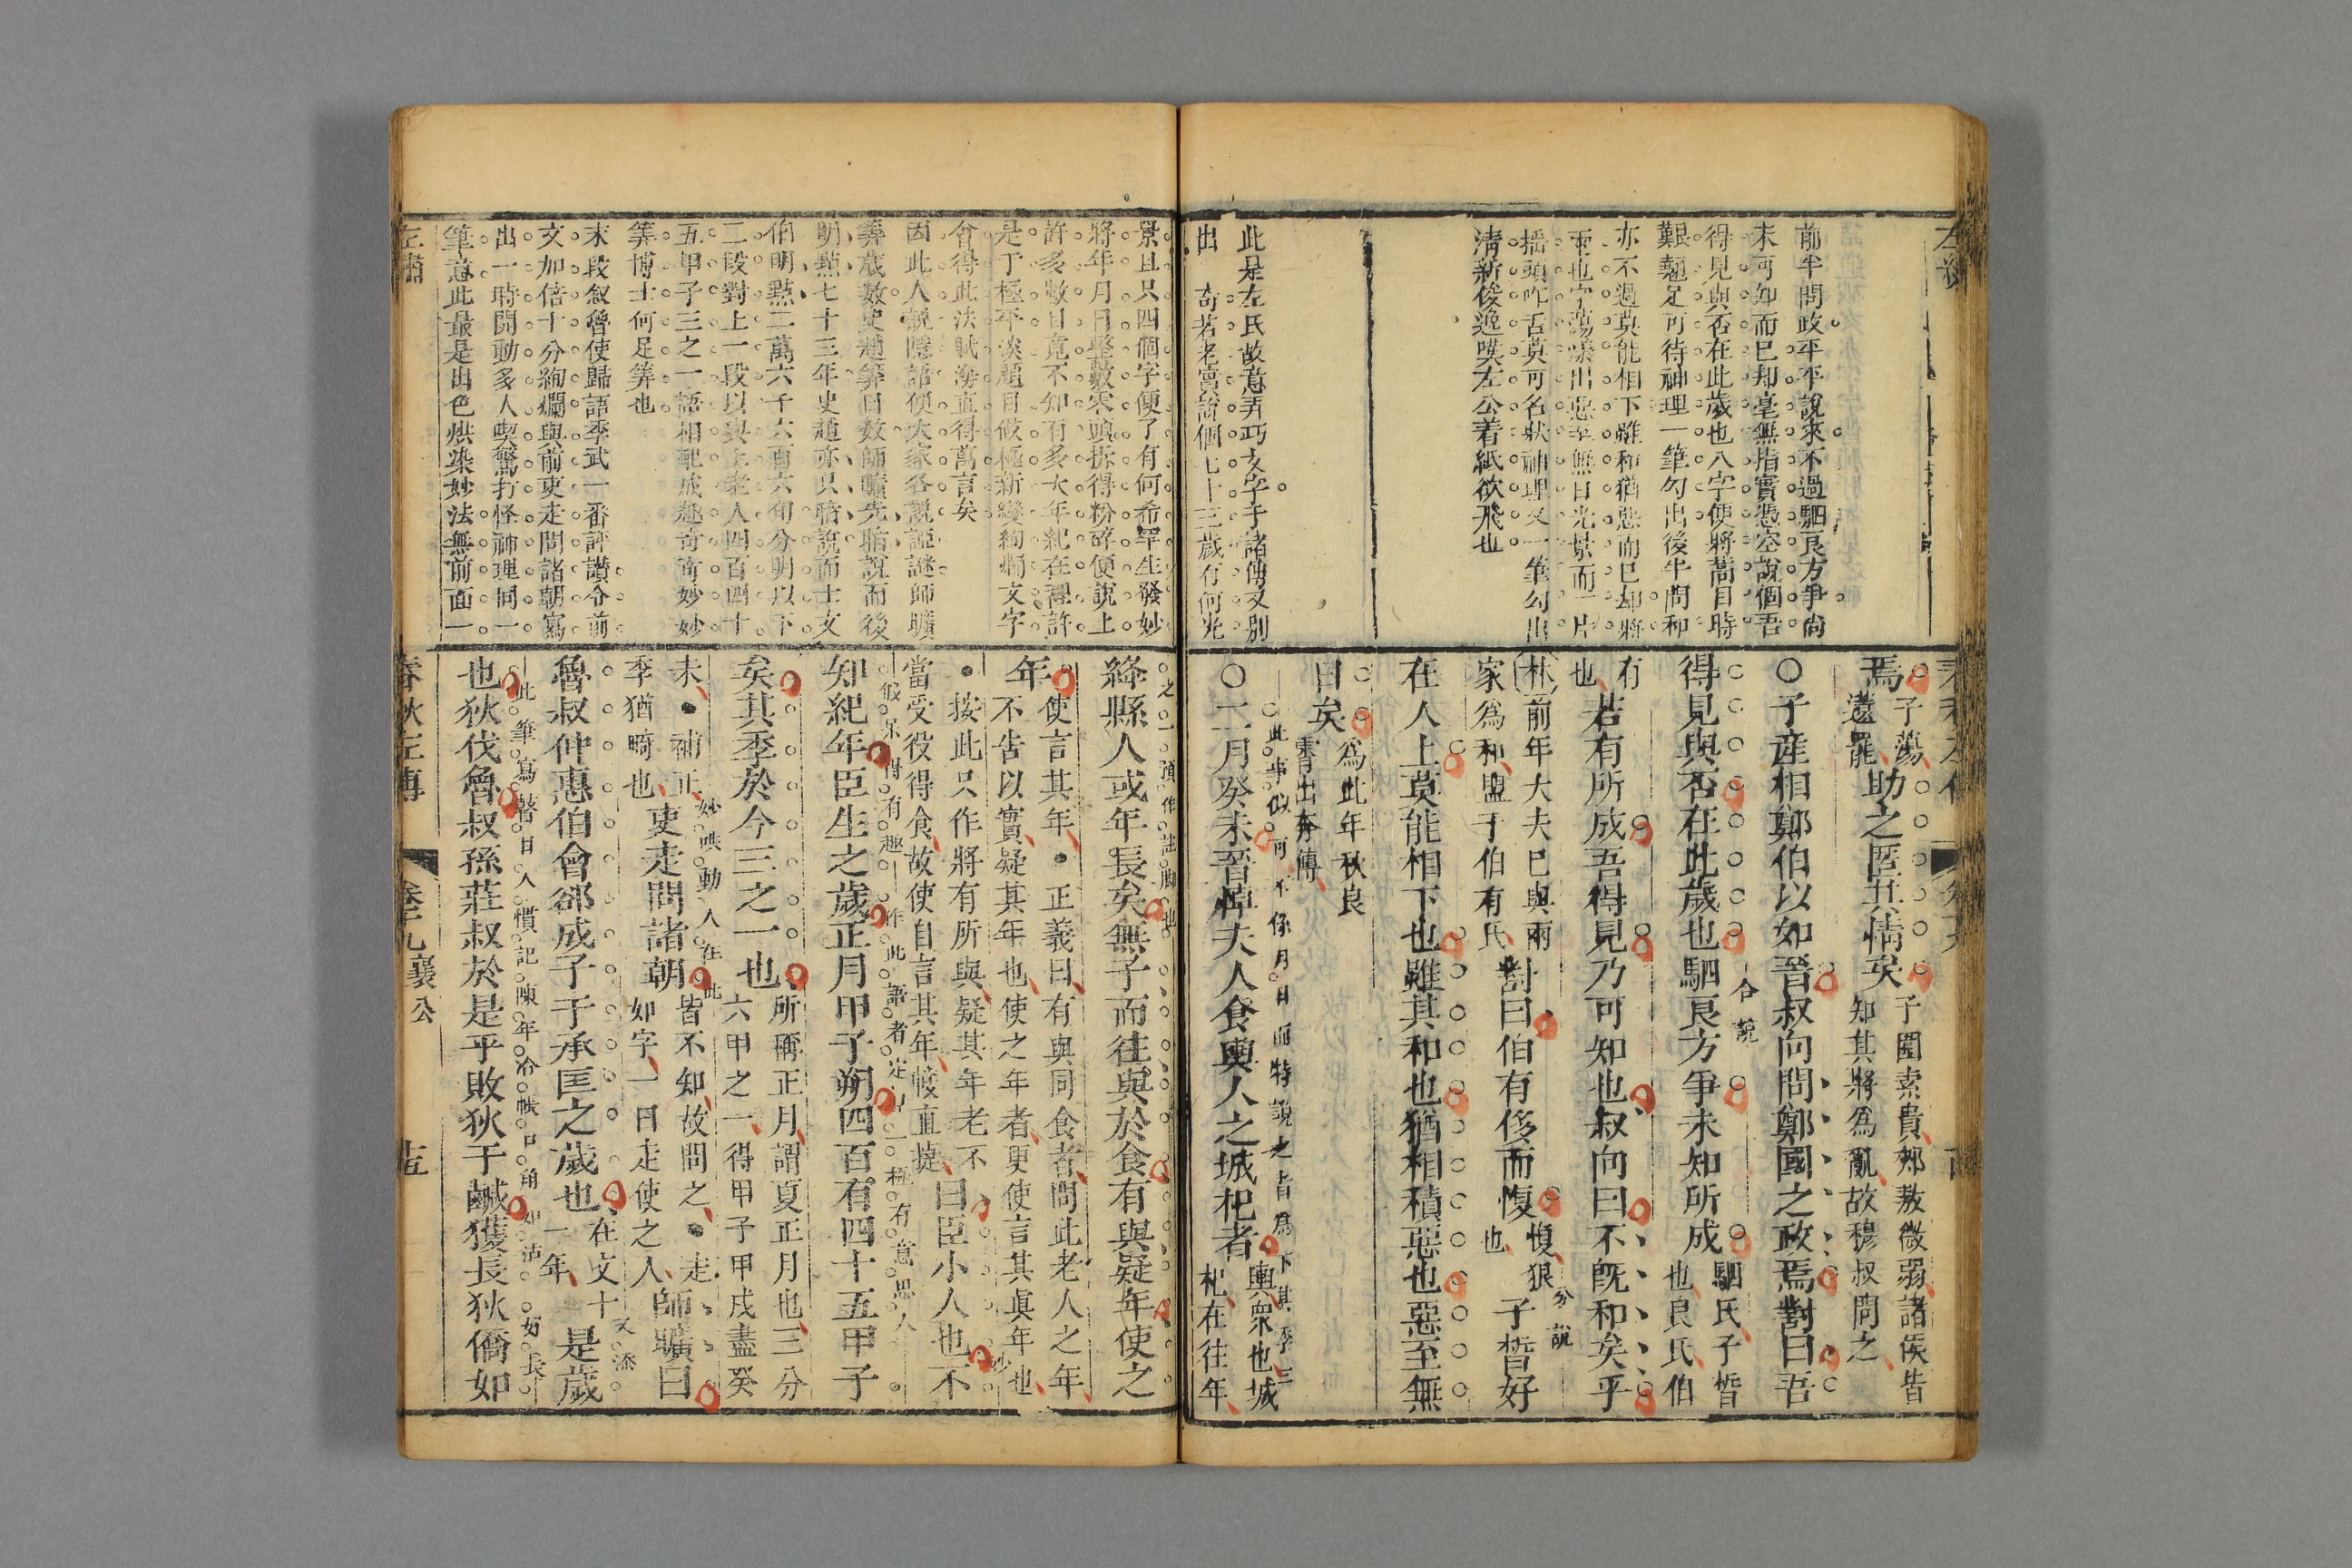 前半問政平平說來不過駟良方爭尚
未可知而已却毫無指實憑空說個吾
得見與否在此歲也八字便將蒿目時
艱翹足可待神理一筆勾出後半問和
亦不過莫能相下雖和猶惡而已却將
而也字蕩漾出惡至無日光景而一片
搖頭咋舌莫可名狀神理又一筆勾出
清新俊逸嘆左公着紙欲飛也
此是左氏故意弄巧文字于諸傳又別
出 奇若老實說個七十三歲有何光
焉子蕩
薳罷助之匿其情矣子圍素貴郟敖微弱諸侯皆
知其將為亂故穆叔問之
○子產相鄭伯以如晉叔向問鄭國之政焉對曰吾
得見與否在此歲也駟良方爭未知所成駟氏子皙
也良氏伯
合說
有
也若有所成吾得見乃可知也叔向曰不既和矣乎
林前年大夫已與兩
家為和盟于伯有氏對曰伯有侈而愎愎狠
也子皙好
分說
在人上莫能相下也雖其和也猶相積惡也惡至無
日矣為此年秋良
霄出奔傳
此事似可不係月日而特說之皆為下其季三
○二月癸未晉悼夫人食輿人之城杞者輿衆也城
杞在往年
景且只四個字便了有何希罕生發妙
將年月日整數零頭拆得粉碎便說上
許多數目竟不知有多大年紀在裡許
是于極平淡題目做極新變絢爛文字
會得此法賦海直得萬言矣
因此人說隱語便大家各說謎謎師曠
筭歲數史趙筭日數師曠先暗說而後
明點七十三年史趙亦只暗說而士文
伯明點二萬六千六百六旬分明以下
二段對上一段以與上老人四百四十
五甲子三之一語相配成趣奇奇妙妙
筭博士何足筭也
末段敘魯使歸語季武一番評讃令前
文加倍十分絢爛與前吏走問諸朝寫
出一時鬨動多人喫驚打怪神理同一
筆意此最是出色烘染妙法無前面一
之一預作註脚也
絳縣人或年長矣無子而往與於食有與疑年使之
年使言其年正義曰有與同食者問此老人之年
不告以實疑其年也使之年者更使言其眞年也
按此只作將有所與疑其年老不
當受役得食故使自言其年較直捷曰臣小人也不
妙
似呆得有趣 作此語者定是一極有意思人
知紀年臣生之歲正月甲子朔四百有四十五甲子
矣其季於今三之一也所稱正月謂夏正月也三分
六甲之一得甲子甲戌盡癸
未補正
季猶畸也吏走問諸朝皆不知故問之走
如字一曰走使之人師曠曰
妙哄動人在此
魯叔仲惠伯會郤成子于承匡之歲也在文十
一年是歲
又添
此筆寫瞽目人慣記陳年冷帳口角如活 好長
也狄伐魯叔孫莊叔於是乎敗狄于鹹獲長狄僑如
左繡
春秋左傳
卷十九襄公
十五